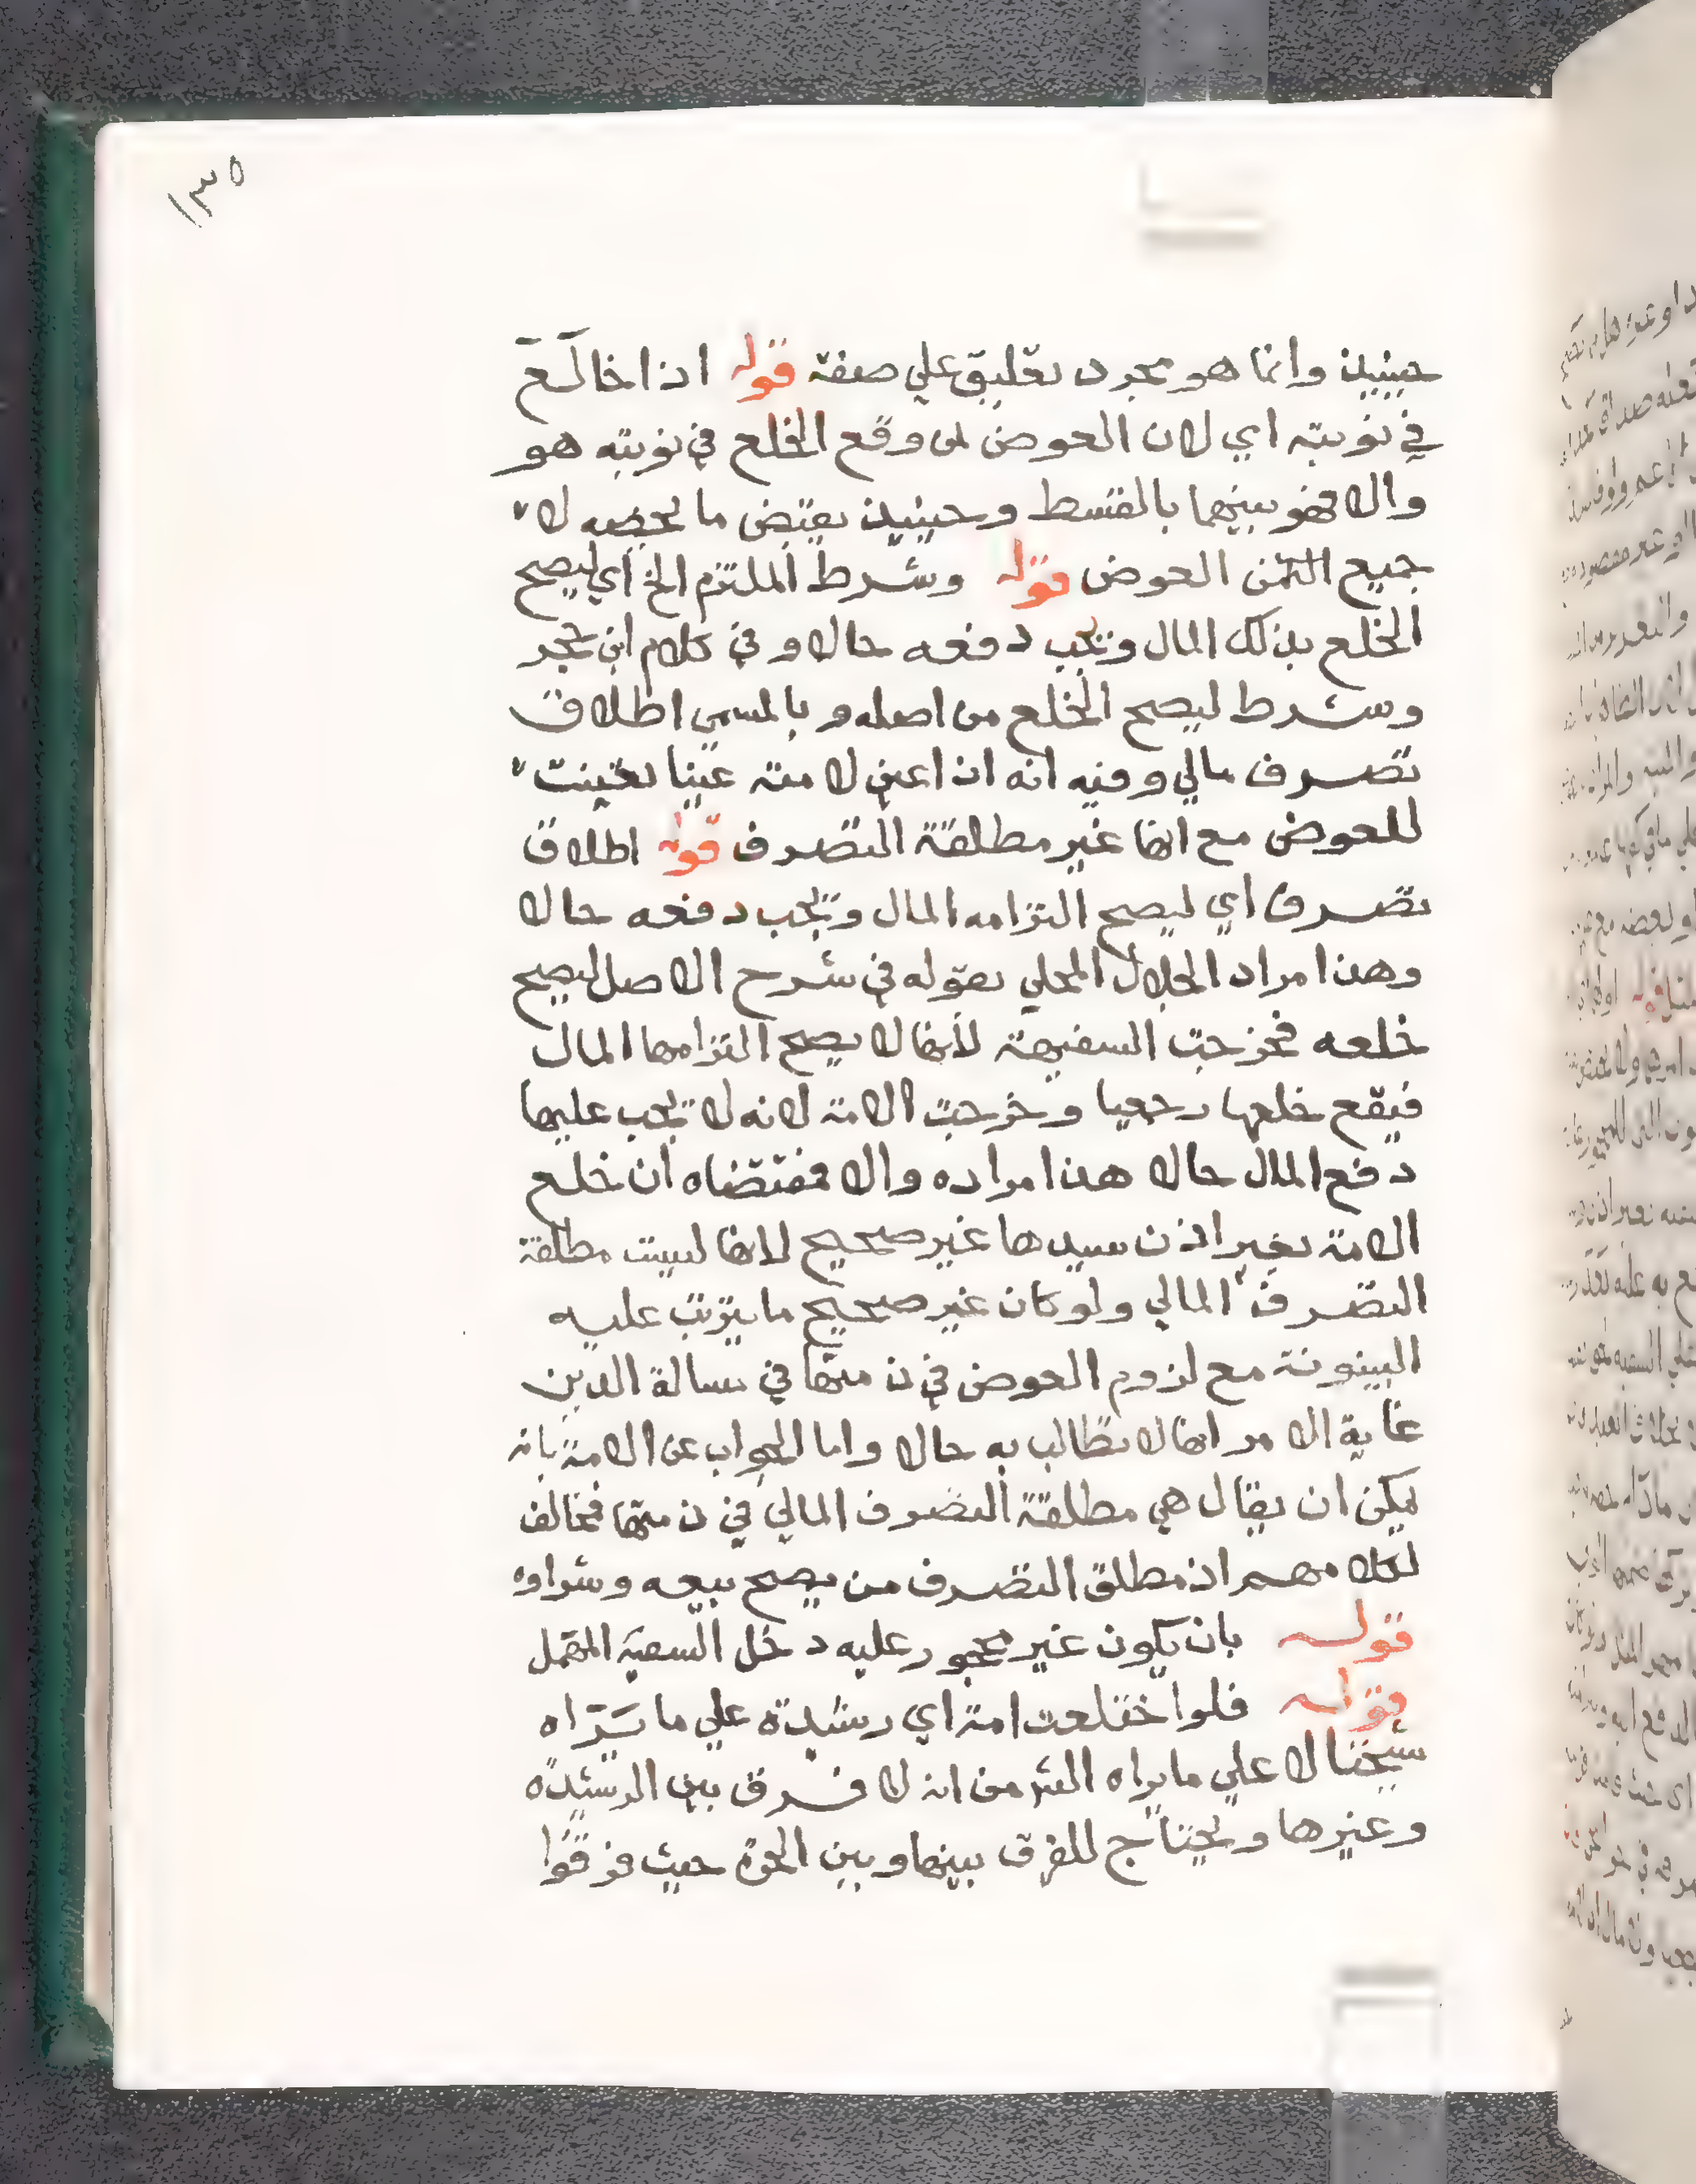 ١٣٥
حينيذ وانما هو مجرد تعليق على صفة قوله اذا خالع
في نوبته اي لان العوض لمن وقع الخلع في نوبته هو
والا فهو بينهما بالقسط وحينيذ يقبض ما يخصه لا
جميع الثمن العوض قوله وشرط الملتزم الخ اي ليصح
الخلع بذلك المال ويجب دفعه حالا وفي كلام ابن حجر
وشرط ليصح الخلع من اصله وبالمسمى اطلاق
تصرف مالي وفيه انه اذا عين لامته عينا تعينت
للعوض مع انها غير مطلقة التصرف قوله اطلاق
تصرف اي ليصح التزامه المال ويجب دفعه حالا
وهذا مراد الجلال المحلي بقوله في شرح الاصل ليصح
خلعه فخرجت السفيهة لأنها لا يصح التزامها المال
فيقع خلعها رجعيا وخرجت الامة لانه لا يجب عليها
دفع المال حالا هذا مراده والا فمقتضاه ان خلع
الامة بغير اذن سيدها غير صحيح لانها ليست مطلقة
التصرف المالي ولو كان غير صحيح ما يترتب عليه
البينونة مع لزوم العوض في ذمتها في مسالة الدين
غاية الامر انها لا تطالب به حالا واما الجواب عن الامة بانه
يمكن ان يقال هي مطلقة التصرف المالي في ذمتها فمخالف
لكلامهم اذ مطلق التصرف من يصح بيعه وشراوه
قوله بان يكون غير محجور عليه دخل السفيه المهمل
قوله فلو اختلعت امة اي رشيدة على ما سيراه
شيخنا لا على ما يراه الشر من انه لا فرق بين الرشيدة
وغيرها ويحتاج للفرق بينها وبين الحرة حيث فرقوا